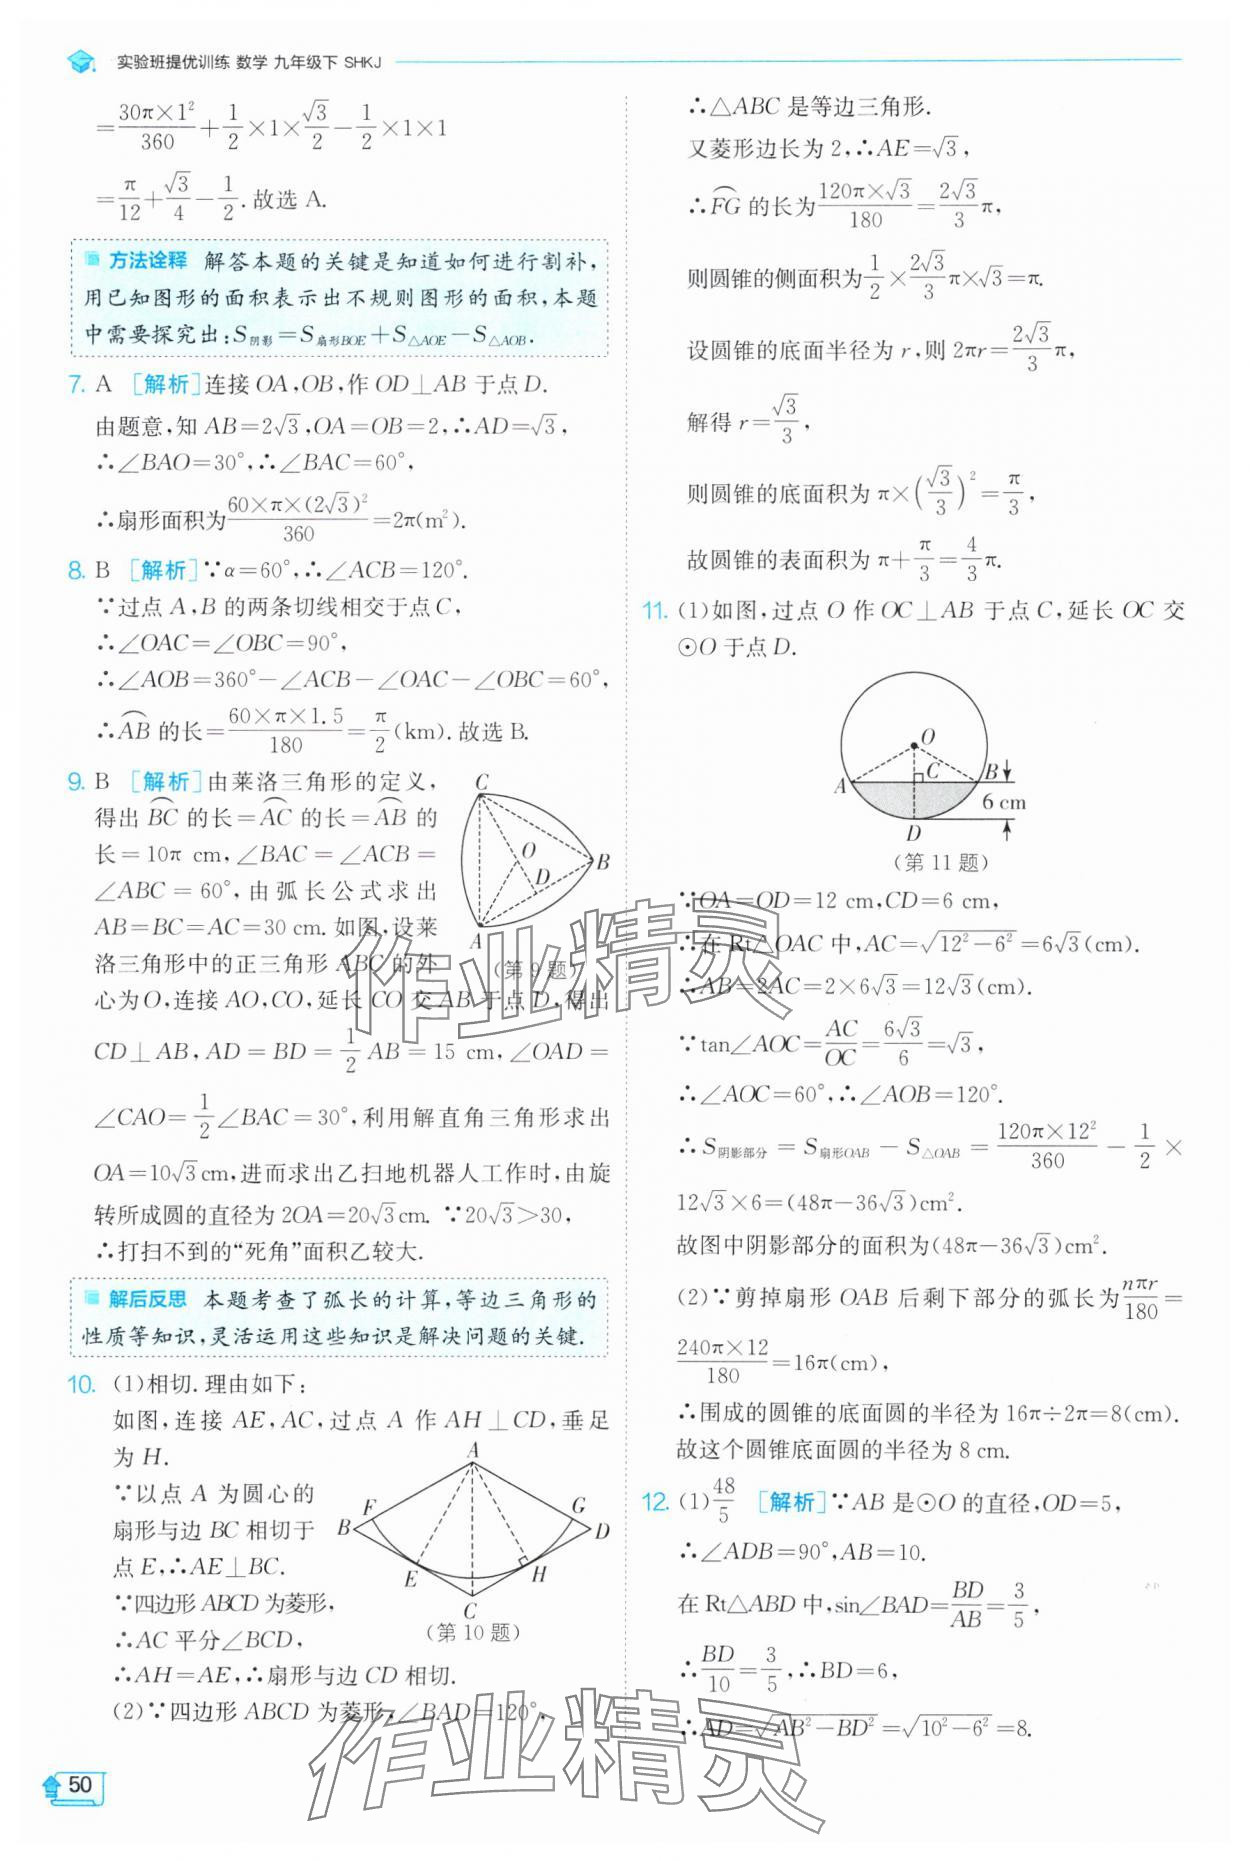 实验班提优训练 数学 九年级下 SHKJ
=30π×1²/360+1/2×1×√3/2-1/2×1×1
=π/12+√3/4-1/2.故选 A.
方法诠释 解答本题的关键是知道如何进行割补,
用已知图形的面积表示出不规则图形的面积,本题
中需要探究出:S阴影=S扇形BOE+S△AOE-S△AOB.
7. A [解析]连接 OA,OB,作 OD⊥AB 于点 D.
由题意,知 AB=2√3,OA=OB=2,∴AD=√3,
∴∠BAO=30°,∴∠BAC=60°,
∴扇形面积为60×π×(2√3)²/360=2π(m²).
8. B [解析]∵α=60°,∴∠ACB=120°.
∵过点 A,B 的两条切线相交于点 C,
∴∠OAC=∠OBC=90°,
∴∠AOB=360°-∠ACB-∠OAC-∠OBC=60°,
∴⌒AB 的长=60×π×1.5/180=π/2(km).故选 B.
9. B [解析]由莱洛三角形的定义,
得出 ⌒BC 的长=⌒AC 的长=⌒AB 的
长=10π cm,∠BAC=∠ACB=
∠ABC=60°,由弧长公式求出
AB=BC=AC=30 cm.如图,设莱
洛三角形中的正三角形 ABC 的外
心为O,连接 AO,CO,延长 CO 交 AB 于点 D,得出
CD⊥AB,AD=BD=1/2 AB=15 cm,∠OAD=
∠CAO=1/2∠BAC=30°,利用解直角三角形求出
OA=10√3 cm,进而求出乙扫地机器人工作时,由旋
转所成圆的直径为 2OA=20√3 cm. ∵20√3>30,
∴打扫不到的“死角”面积乙较大.
C
O
B
D
A
(第 9 题)
解后反思 本题考查了弧长的计算,等边三角形的
性质等知识,灵活运用这些知识是解决问题的关键.
10. (1)相切.理由如下:
如图,连接 AE,AC,过点 A 作 AH⊥CD,垂足
为 H.
∵以点 A 为圆心的
扇形与边 BC 相切于
点 E,∴AE⊥BC.
∵四边形 ABCD 为菱形,
∴AC 平分∠BCD,
∴AH=AE,∴扇形与边 CD 相切.
(2)∵四边形 ABCD 为菱形,∠BAD=120°,
A
F
G
B
D
E
H
C
(第 10 题)
∴△ABC 是等边三角形.
又菱形边长为 2,∴AE=√3,
∴⌒FG 的长为120π×√3/180=2√3/3π,
则圆锥的侧面积为1/2×2√3/3π×√3=π.
设圆锥的底面半径为 r,则 2πr=2√3/3π,
解得 r=√3/3,
则圆锥的底面积为 π×(√3/3)²=π/3,
故圆锥的表面积为 π+π/3=4/3π.
11. (1)如图,过点 O 作 OC⊥AB 于点 C,延长 OC 交
⊙O 于点 D.
O
C
A
B
6 cm
D
(第 11 题)
∵OA=OD=12 cm,CD=6 cm,
∴在 Rt△OAC 中,AC=√(12²-6²)=6√3(cm).
∴AB=2AC=2×6√3=12√3(cm).
∵tan∠AOC=AC/OC=6√3/6=√3,
∴∠AOC=60°,∴∠AOB=120°.
∴S阴影部分=S扇形OAB-S△OAB=120π×12²/360-1/2×
12√3×6=(48π-36√3)cm².
故图中阴影部分的面积为(48π-36√3)cm².
(2)∵剪掉扇形 OAB 后剩下部分的弧长为nπr/180=
240π×12/180=16π(cm),
∴围成的圆锥的底面圆的半径为 16π÷2π=8(cm).
故这个圆锥底面圆的半径为 8 cm.
12. (1)48/5 [解析]∵AB 是⊙O 的直径,OD=5,
∴∠ADB=90°,AB=10.
在 Rt△ABD 中,sin∠BAD=BD/AB=3/5,
∴BD/10=3/5,∴BD=6,
∴AD=√(AB²-BD²)=√(10²-6²)=8.
50
作业精灵
作业精灵